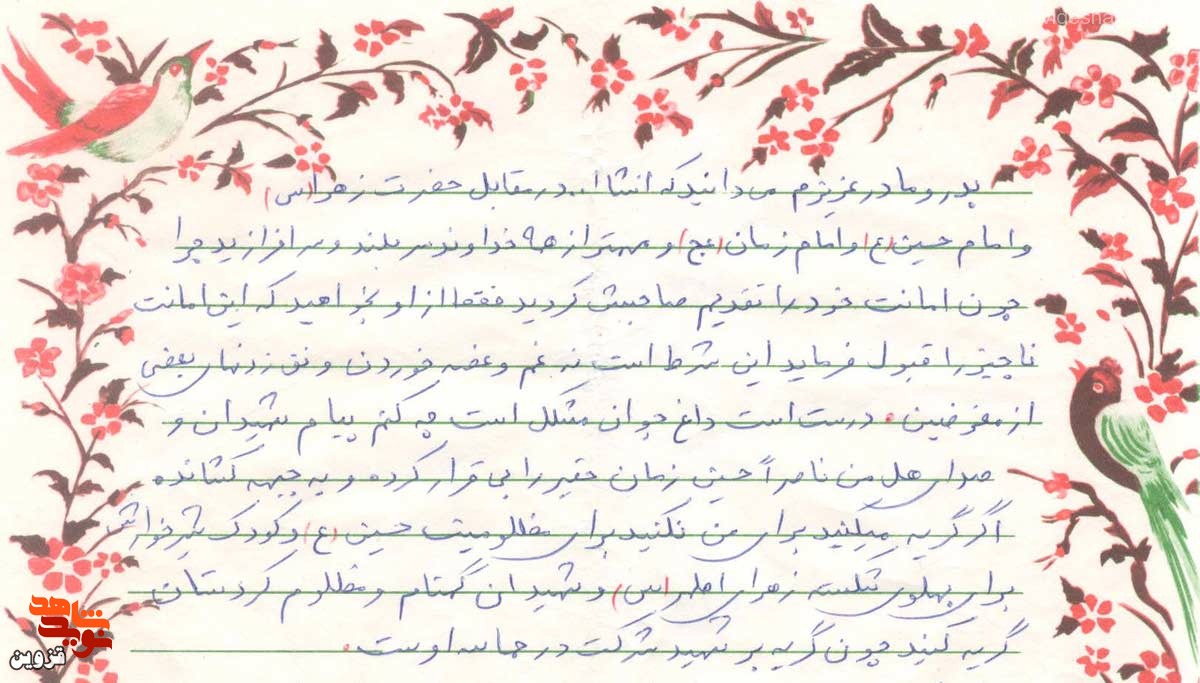 پدر و مادر عزیزم می دانید که انشاا... در مقابل حضرت زهرا(س)
و امام حسین(ع) و امام زمان(عج) و مهمتر از همه خداوند سربلند و سرافرازید چرا
چون امانت خود را تقدیم صاحبش کردید فقط از او بخواهید که این امانت
ناچیز را قبول فرماید این شرط است نه غم و غصه خوردن و نق زدنهای بعضی
از مغرضین. درست است داغ جوان مشکل است چه کنم پیام شهیدان و
صدای هل من ناصراً حسین زمان حقیر را بی قرار کرده و به جبهه کشانده
اگر گریه میکنید برای من نکنید برای مظلومیت حسین (ع) و کودک شیرخوارش
برای پهلوی شکسته زهرای اطهر(س) و شهیدان گمنام و مظلوم کردستان
گریه کنید چون گریه بر شهید شرکت در حماسه اوست.
نوید شاهد
قزوین